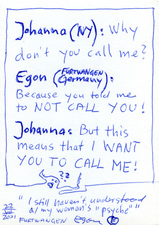 Johanna (NY): Why
don't you call me?
Egon (FURTWANGEN Germany):
Because you told me
to NOT CALL YOU!
Johanna: But this
means that I WANT
YOU TO CALL ME!
??
"I still haven't understood
all my woman's "psyche""
22
2001
FURTWANGEN egon